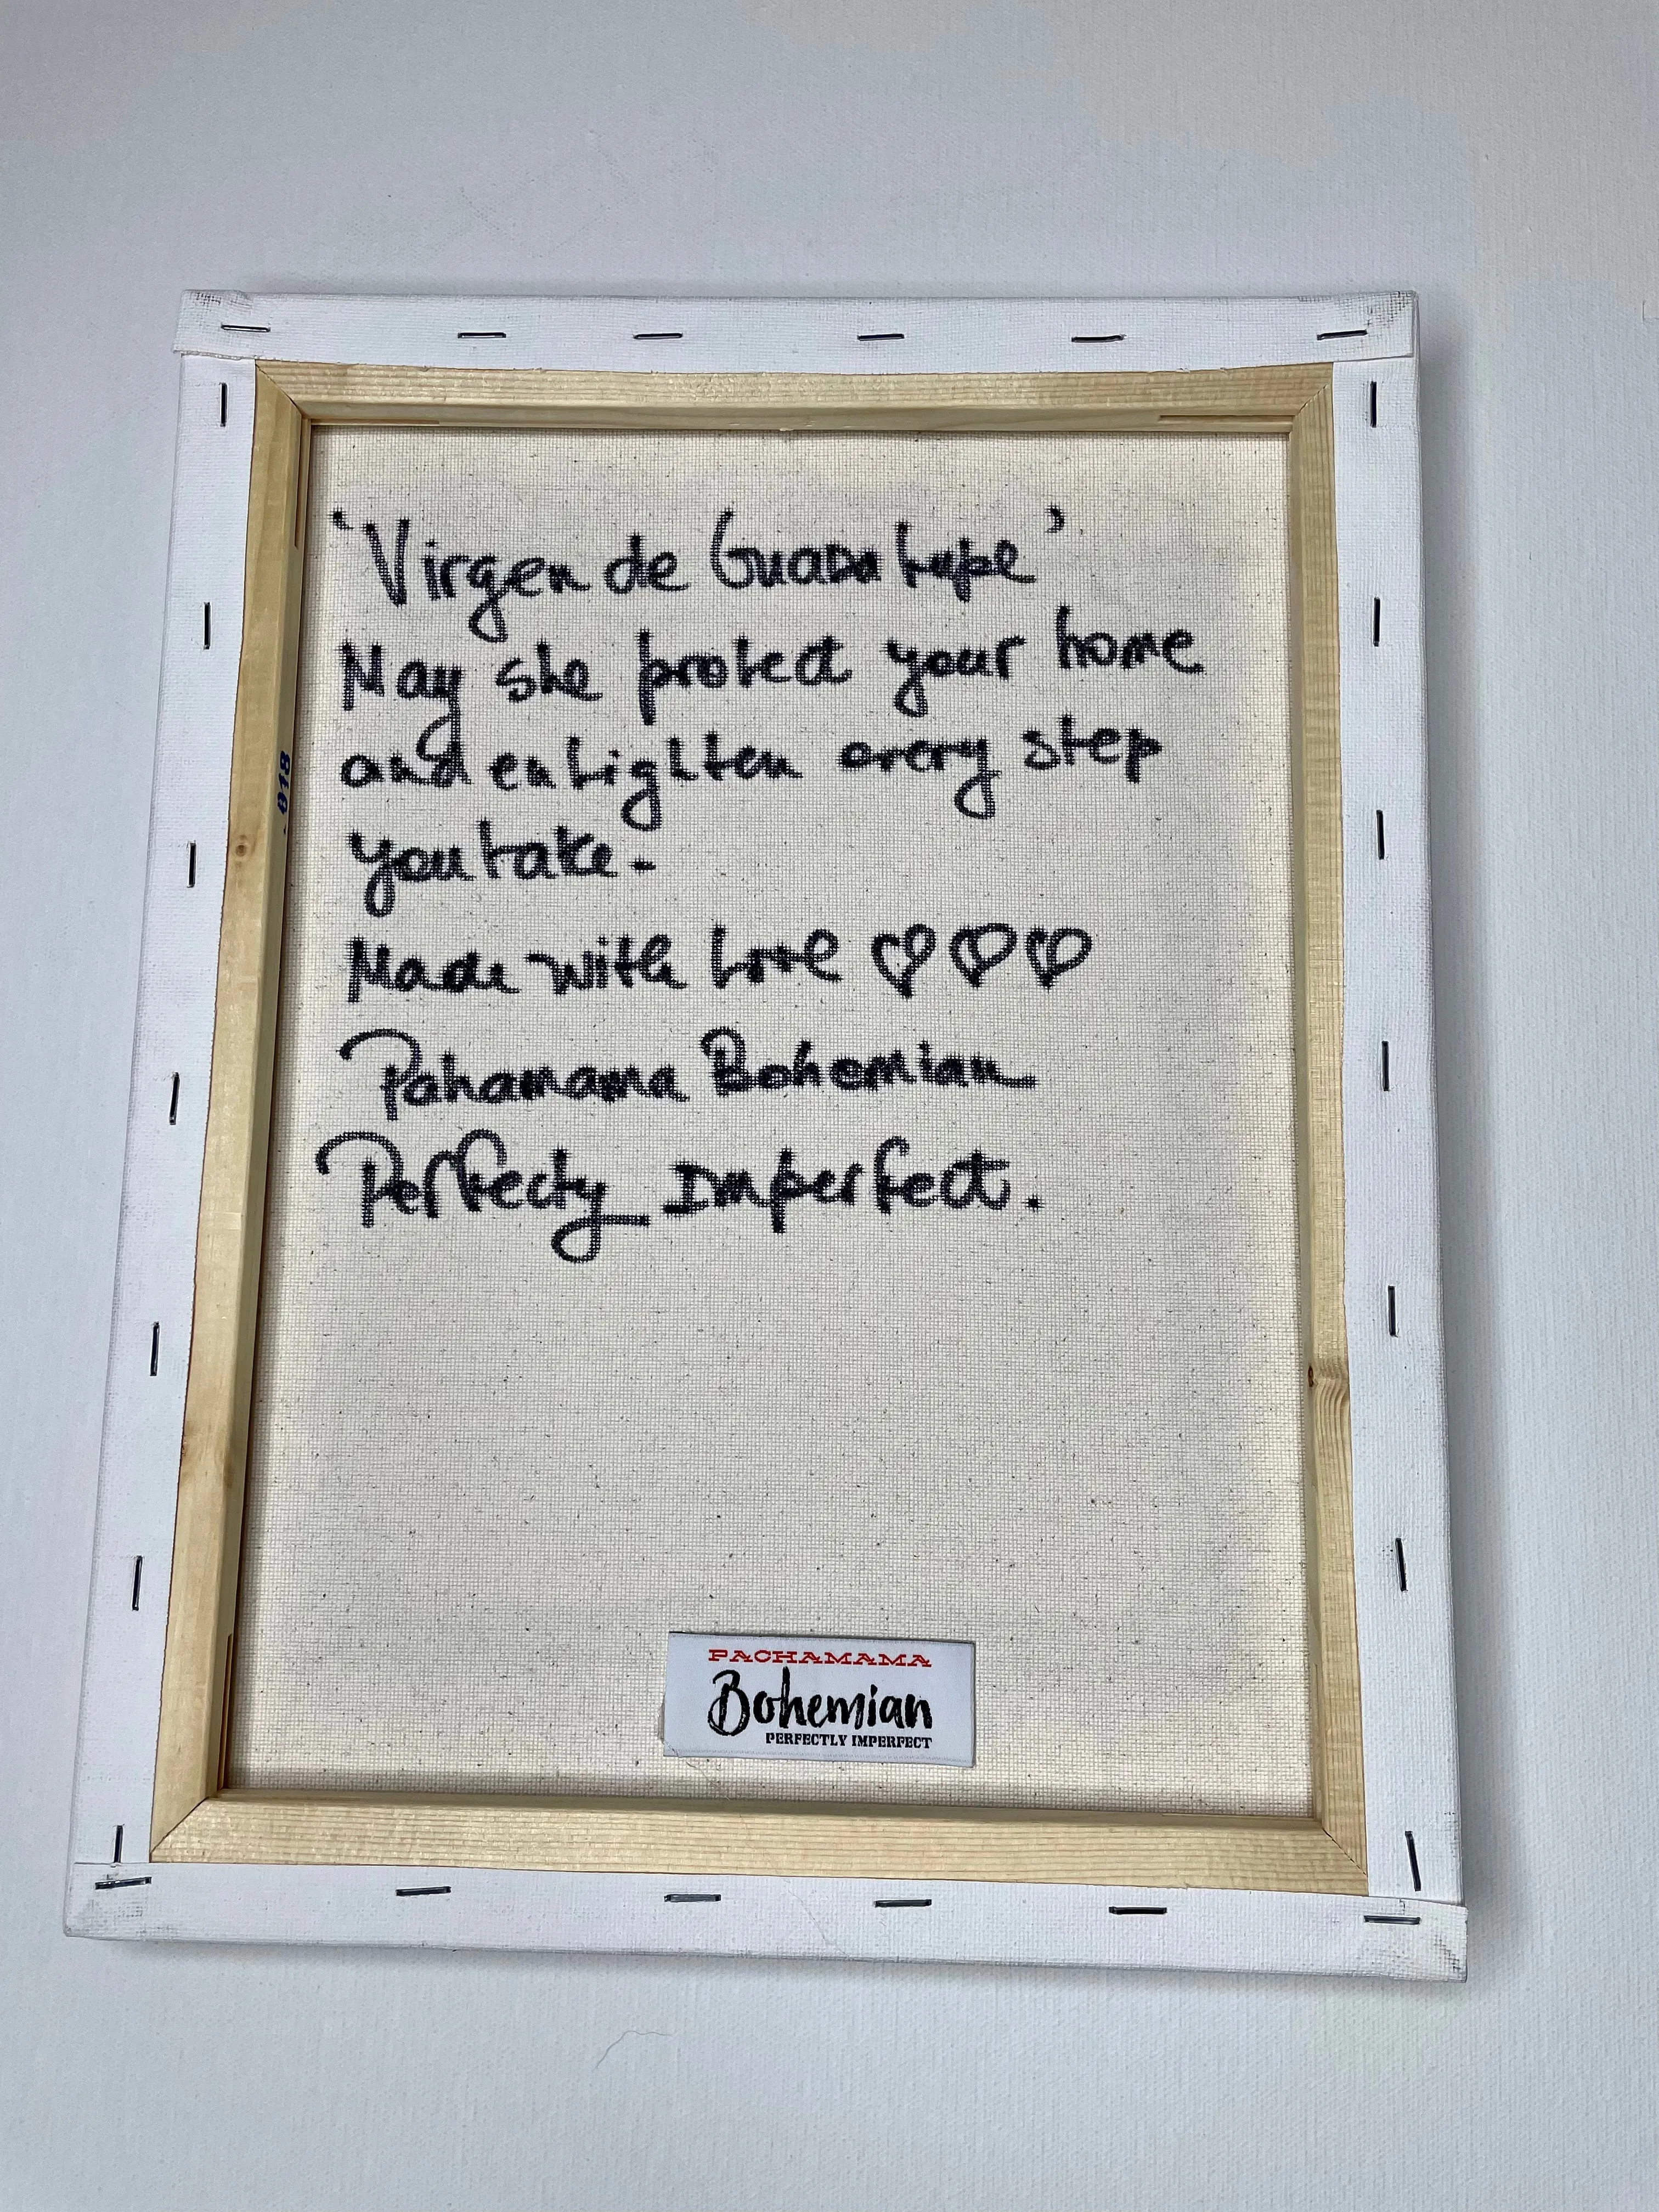 'Virgen de Guadalupe'
May she protect your home
and enlighten every step
you take.
Made with Love ♡♡♡
Pahamama Bohemian
Perfecty Imperfect.
PACHAMAMA
Bohemian
PERFECTLY IMPERFECT